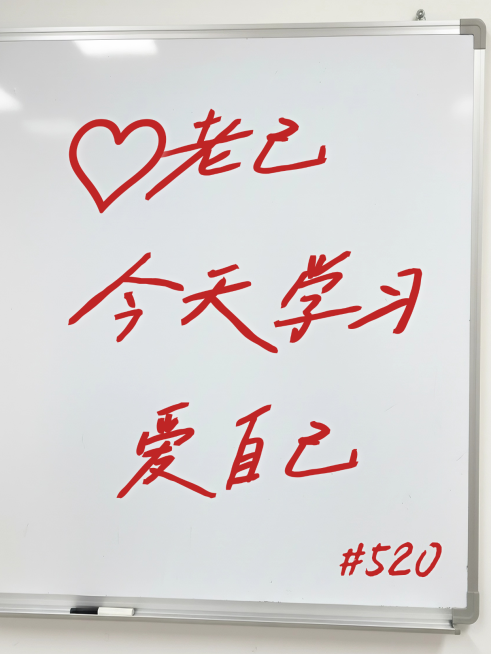 ♡老己
今天学习
爱自己
#520